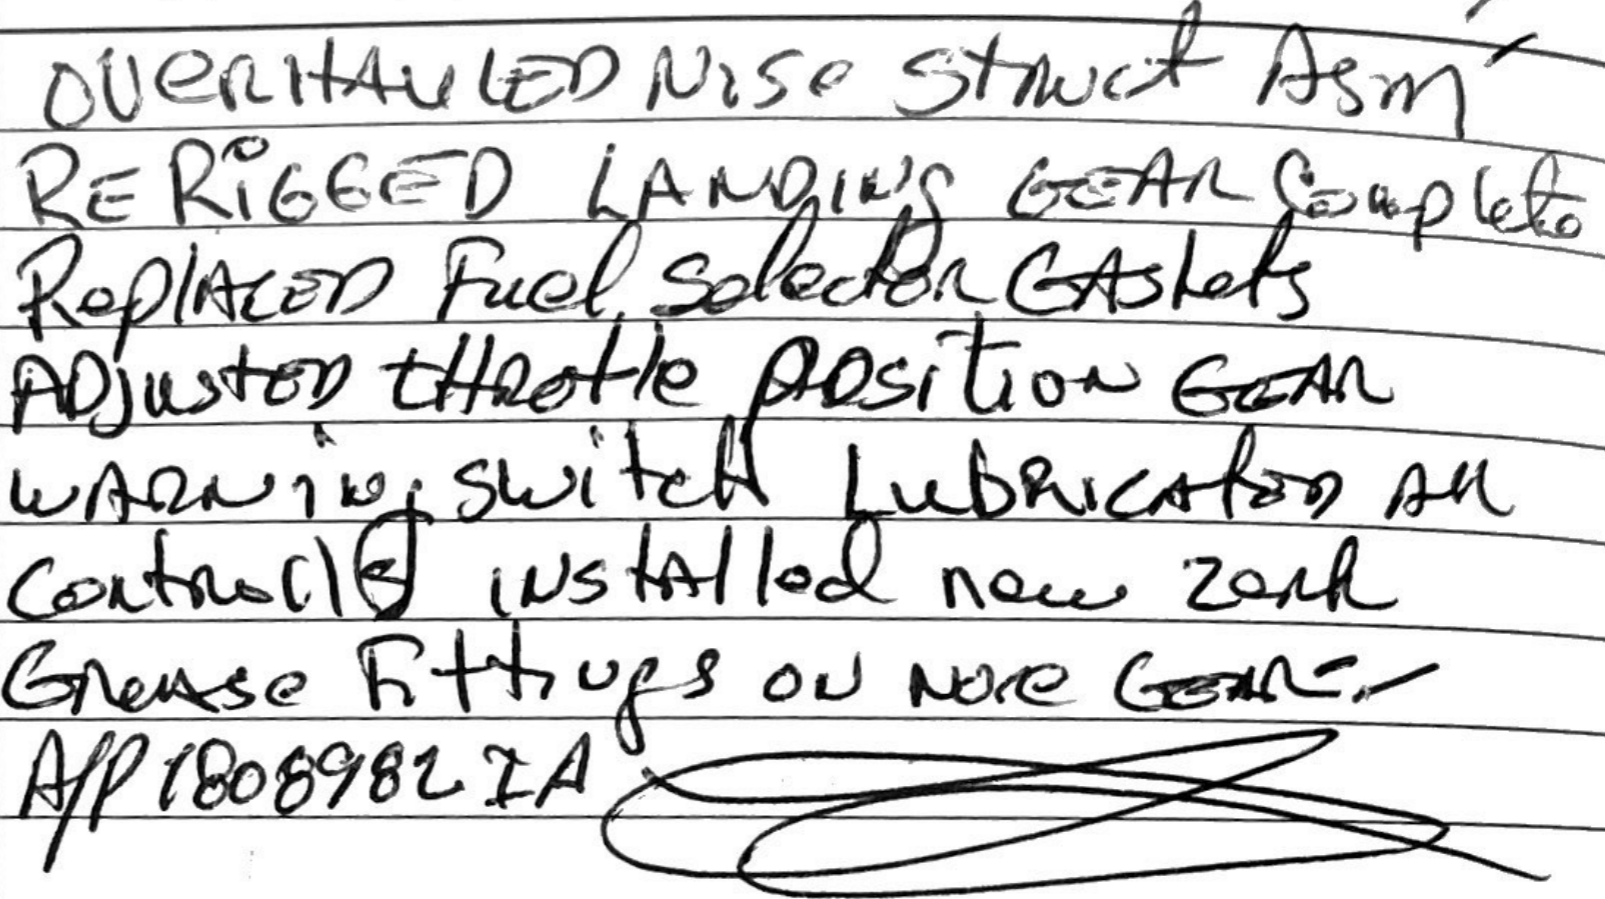 OVERHAULED NOSE STRUCT ASM
RE RIGGED LANDING GEAR Complete
Replaced Fuel Selector GASkets
ADjusted tHRottle position GEAR
WARNiNg SWitcH LubRicated All
Controlls iNstAlled new zerk
Grease Fittings ON Nose GEAR
A/P 1808982 IA